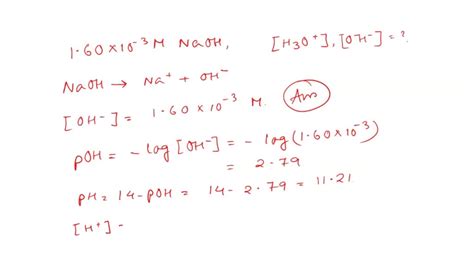 1.60×10⁻³ M NaOH, [H₃O⁺], [OH⁻] = ?
NaOH → Na⁺ + OH⁻
[OH⁻] = 1.60×10⁻³ M. Ans
pOH = - log [OH⁻] = - log(1.60×10⁻³)
= 2.79
pH = 14-pOH = 14- 2.79 = 11.21
[H⁺] -